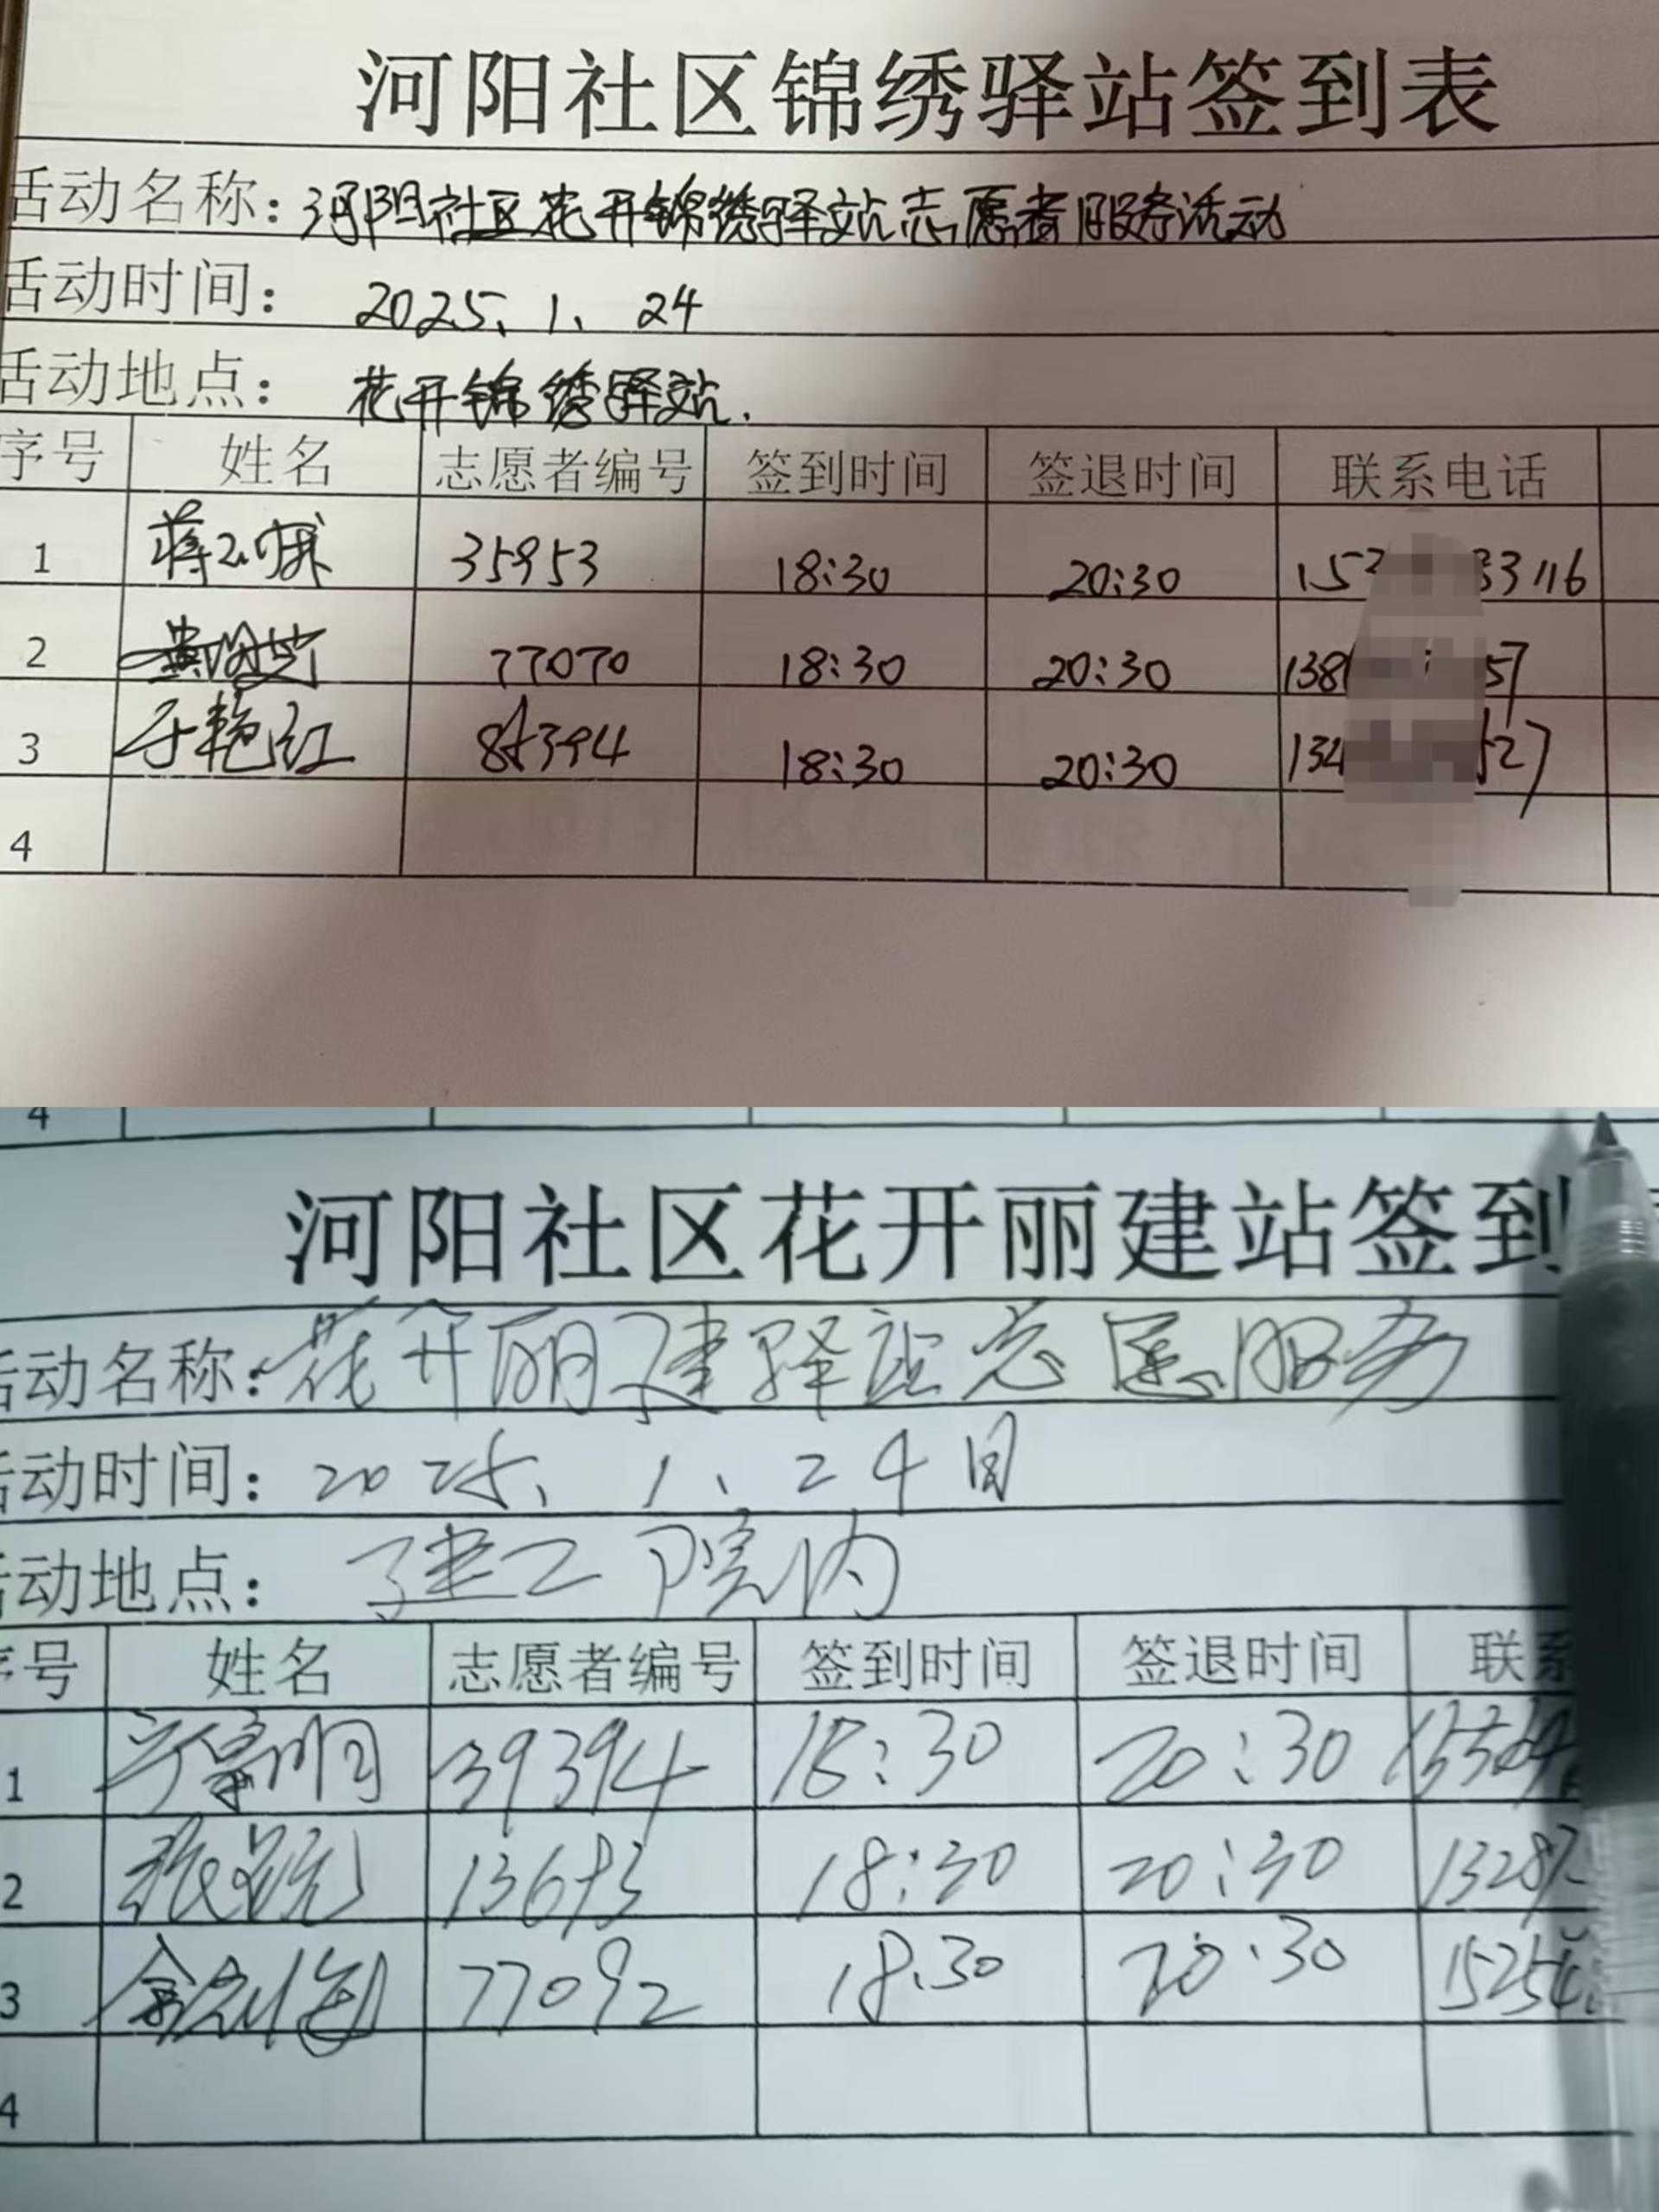 河阳社区锦绣驿站签到表
活动名称：河阳社区花开锦绣驿站志愿者服务活动
活动时间： 2025、1、24
活动地点： 花开锦绣驿站.
序号 姓名 志愿者编号 签到时间 签退时间 联系电话
1 35953 18:30 20:30 152 33116
2 77070 18:30 20:30 138 57
3 于艳红 18:30 20:30 134 527
4
4
河阳社区花开丽建站签到
活动名称：花开丽建驿站志愿服务
活动时间：2025、1、24日
活动地点： 建工院内
序号 姓名 志愿者编号 签到时间 签退时间 联系
1 39394 18:30 20:30
2 18:30 20:30 1328
3 77092 18:30 20:30 15254
4